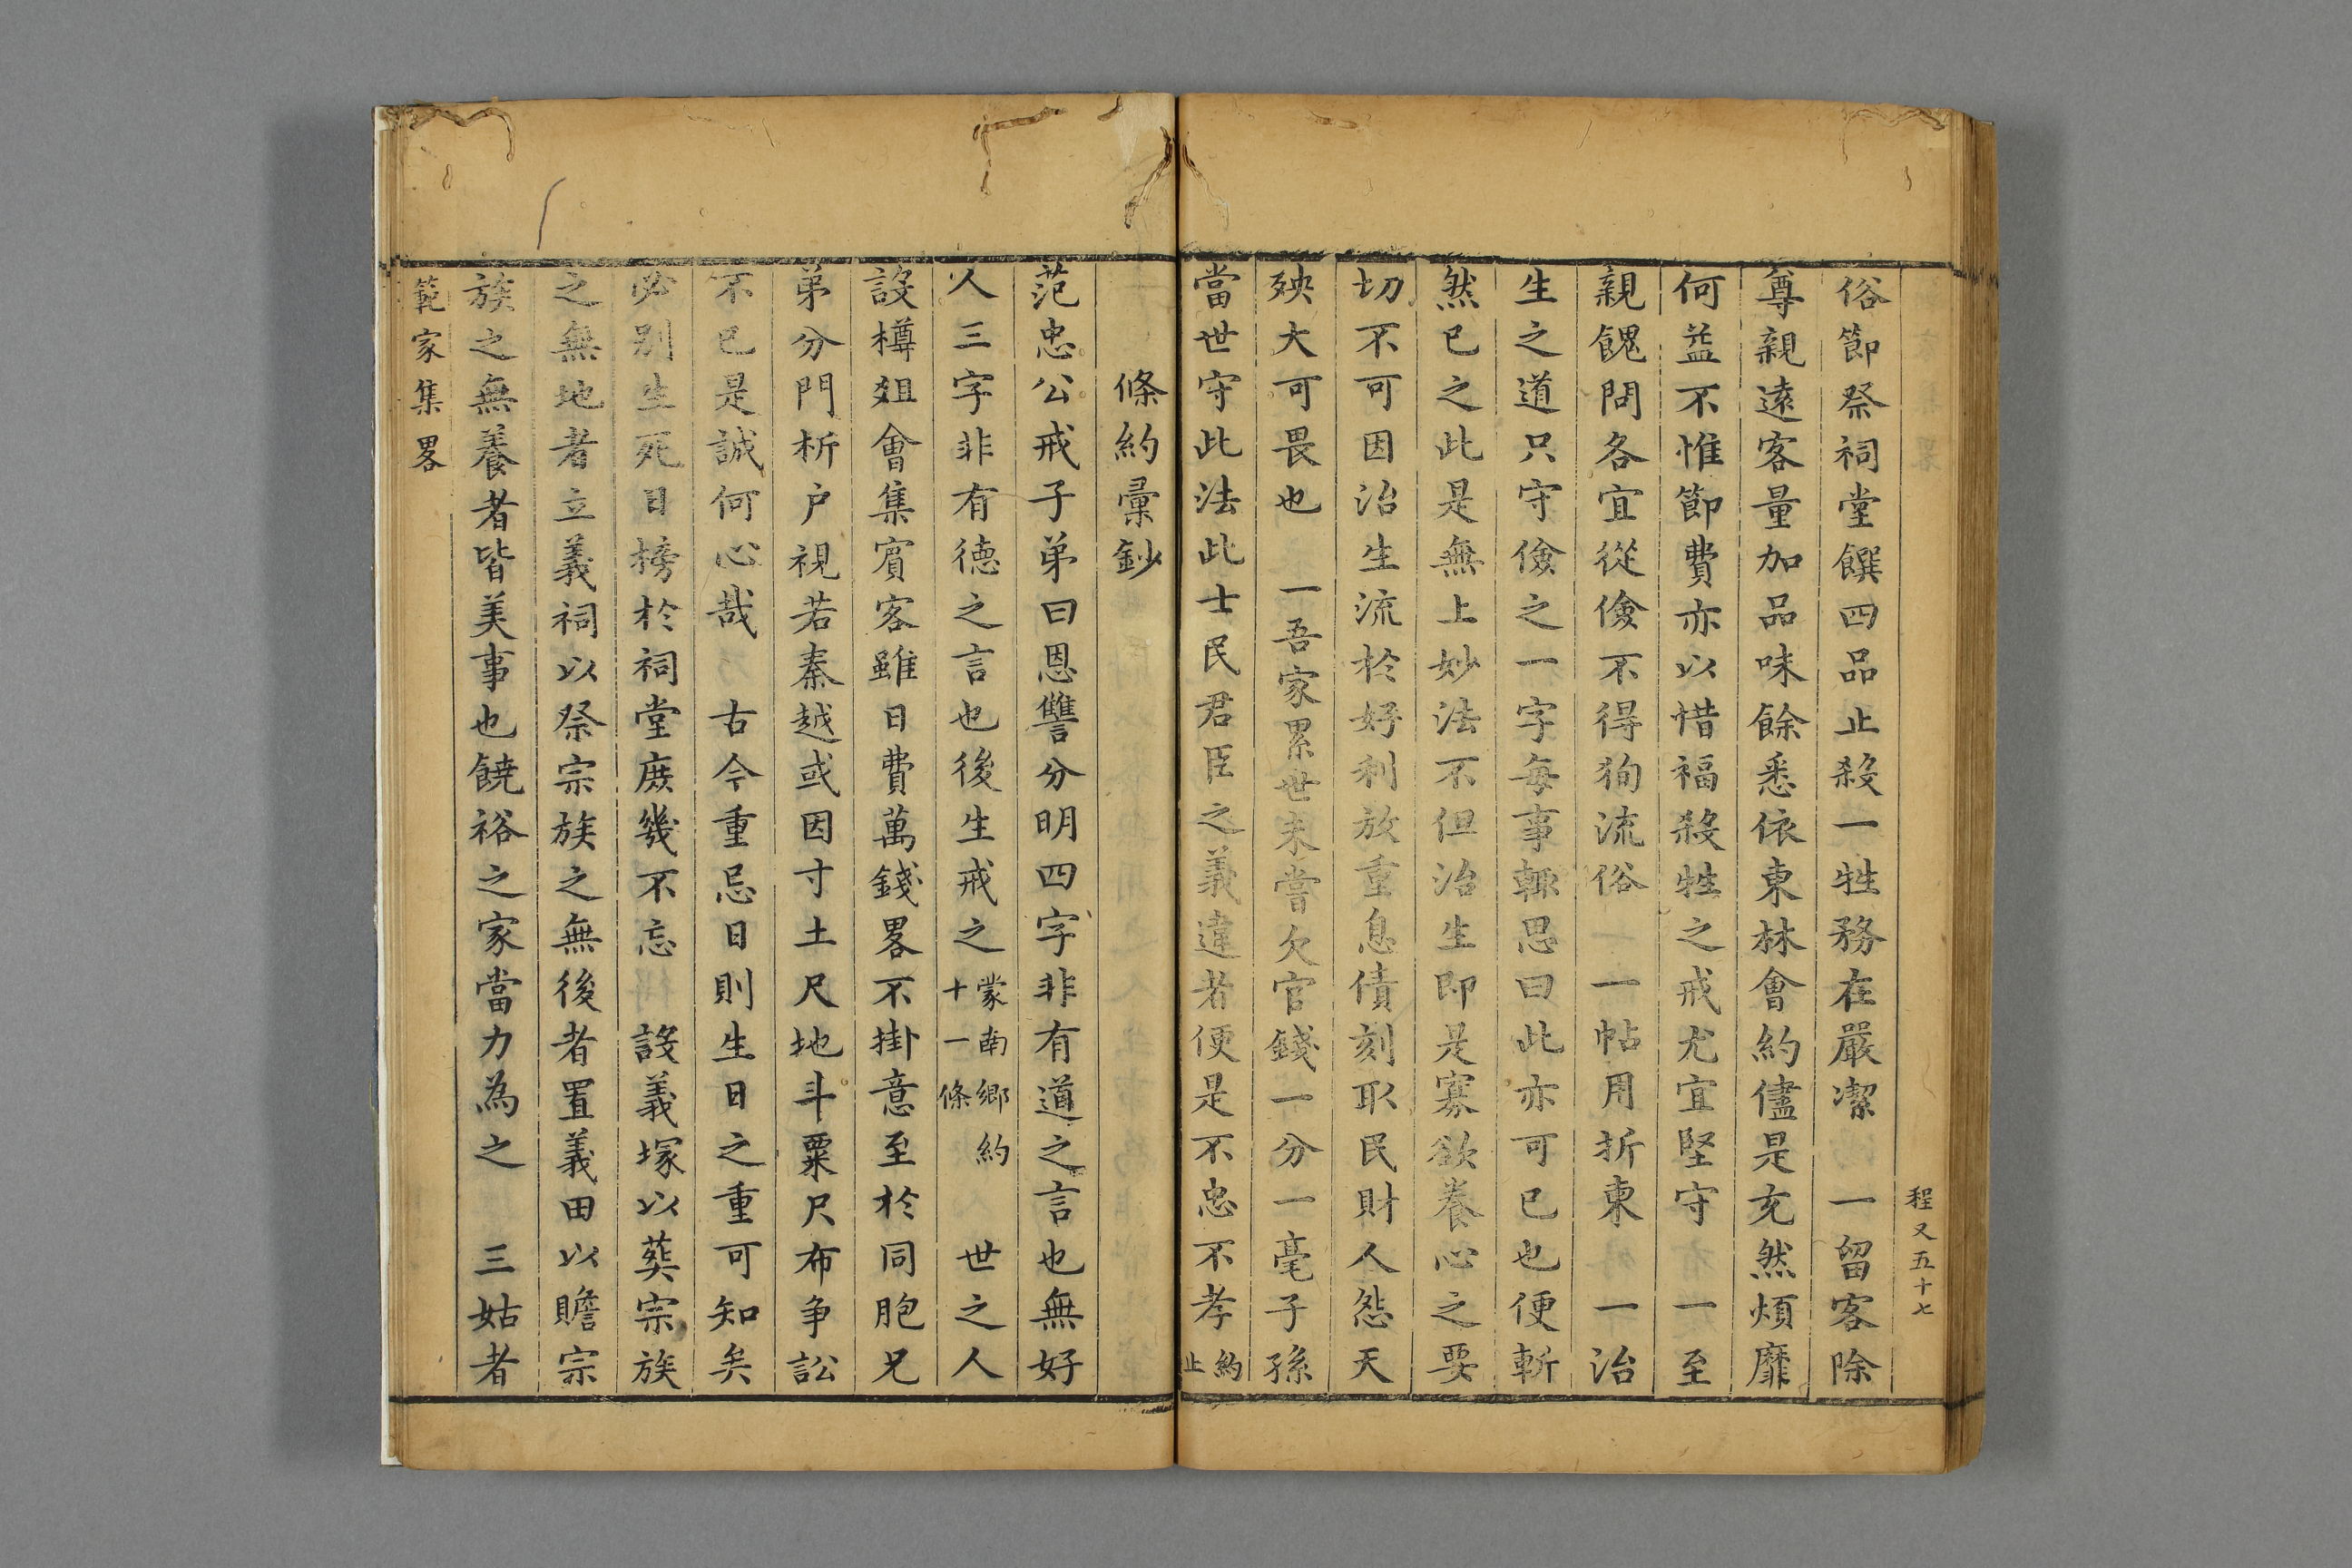 程又五十七
俗節祭祠堂饌四品止殺一牲務在嚴潔　一留客除
尊親遠客量加品味餘悉依東林會約儘是充然煩靡
何益不惟節費亦以惜福殺牲之戒尤宜堅守　一至
親餽問各宜從儉不得狥流俗　一帖用折柬　一治
生之道只守儉之一字每事輒思曰此亦可已也便斬
然已之此是無上妙法不但治生即是寡欲養心之要
切不可因治生流於好利放重息債刻取民財人怨天
殃大可畏也　一吾家累世未嘗欠官錢一分一毫子孫
當世守此法此士民君臣之義違者便是不忠不孝約止
條約彙鈔
范忠公戒子弟曰恩讐分明四字非有道之言也無好
人三字非有德之言也後生戒之蒙南鄉約十一條　世之人
設樽俎會集賓客雖日費萬錢畧不掛意至於同胞兄
弟分門析戶視若秦越或因寸土尺地斗粟尺布争訟
不已是誠何心哉　古今重忌日則生日之重可知矣
必别生死日榜於祠堂庶幾不忘　設義塚以葬宗族
之無地者立義祠以祭宗族之無後者置義田以贍宗
族之無養者皆美事也饒裕之家當力為之　三姑者
範家集畧